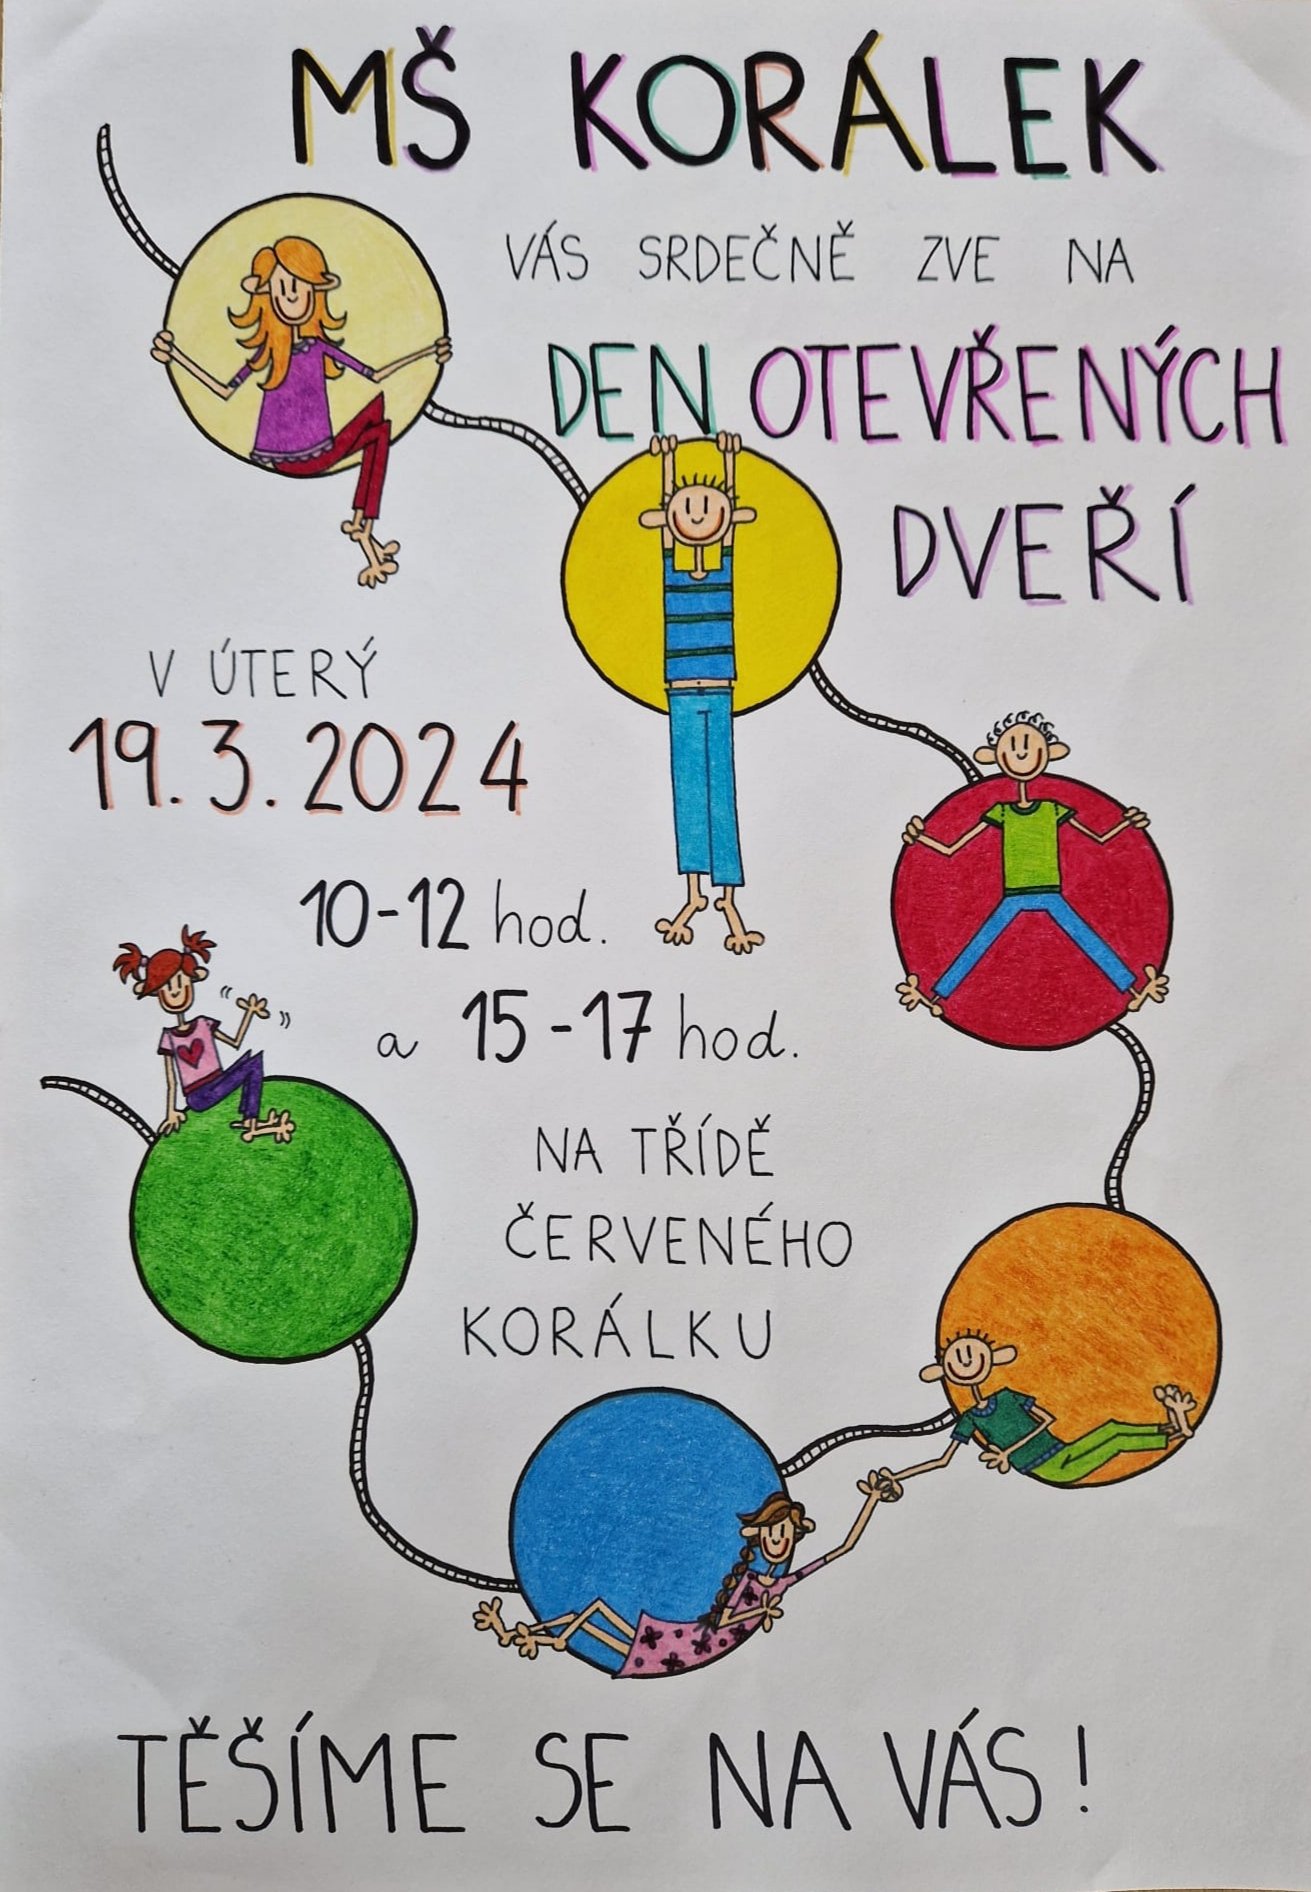 MŠ KORÁLEK
VÁS SRDEČNĚ ZVE NA
DEN OTEVŘENÝCH
DVEŘÍ
V ÚTERÝ
19. 3. 2024
10-12 hod.
a 15-17 hod.
NA TŘÍDĚ
ČERVENÉHO
KORÁLKU
TĚŠÍME SE NA VÁS!